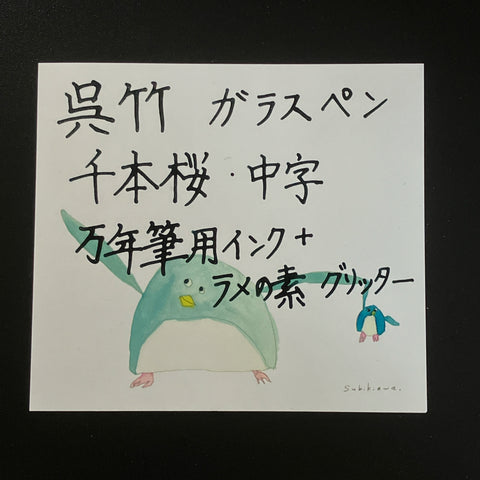 呉竹 ガラスペン
千本桜・中字
万年筆用インク+
ラメの素 グリッター
Subikiawa.